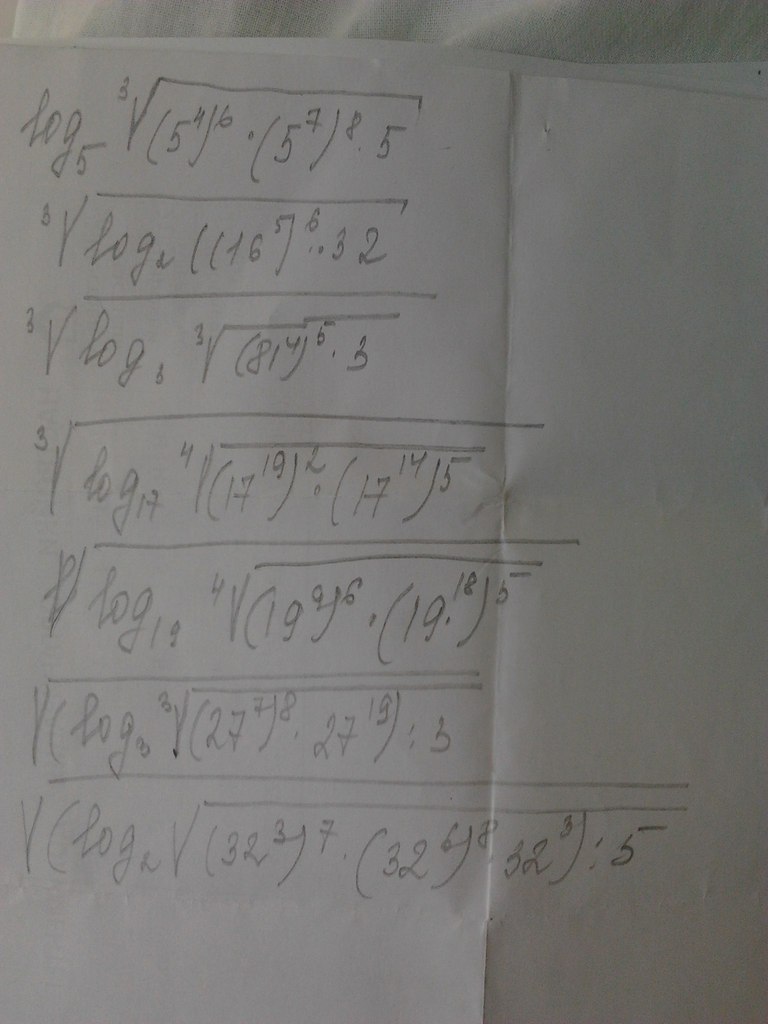 log₅ ³√((5⁴)⁶ · (5⁷)⁸ · 5)
³√(log₂ ((16⁵)⁶ · 32
³√(log₃ ³√((81⁴)⁵ · 3))
³√(log₁₇ ⁴√((17¹⁹)² · (17¹⁴)⁵))
√(log₁₉ ⁴√((19⁹)⁶ · (19¹⁸)⁵))
√((log₃ ³√((27⁷)⁸ · 27¹⁹) : 3
√((log₂ √((32³)⁷ · (32⁶)⁸ · 32³) : 5